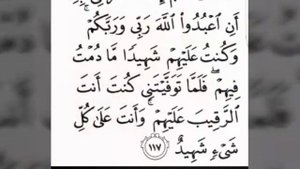 أَنِ ٱعْبُدُوا۟ ٱللَّهَ رَبِّى وَرَبَّكُمْ ۚ
وَكُنتُ عَلَيْهِمْ شَهِيدًا مَّا دُمْتُ
فِيهِمْ ۖ فَلَمَّا تَوَفَّيْتَنِى كُنتَ أَنتَ
ٱلرَّقِيبَ عَلَيْهِمْ ۚ وَأَنتَ عَلَىٰ كُلِّ
شَىْءٍ شَهِيدٌ ١١٧